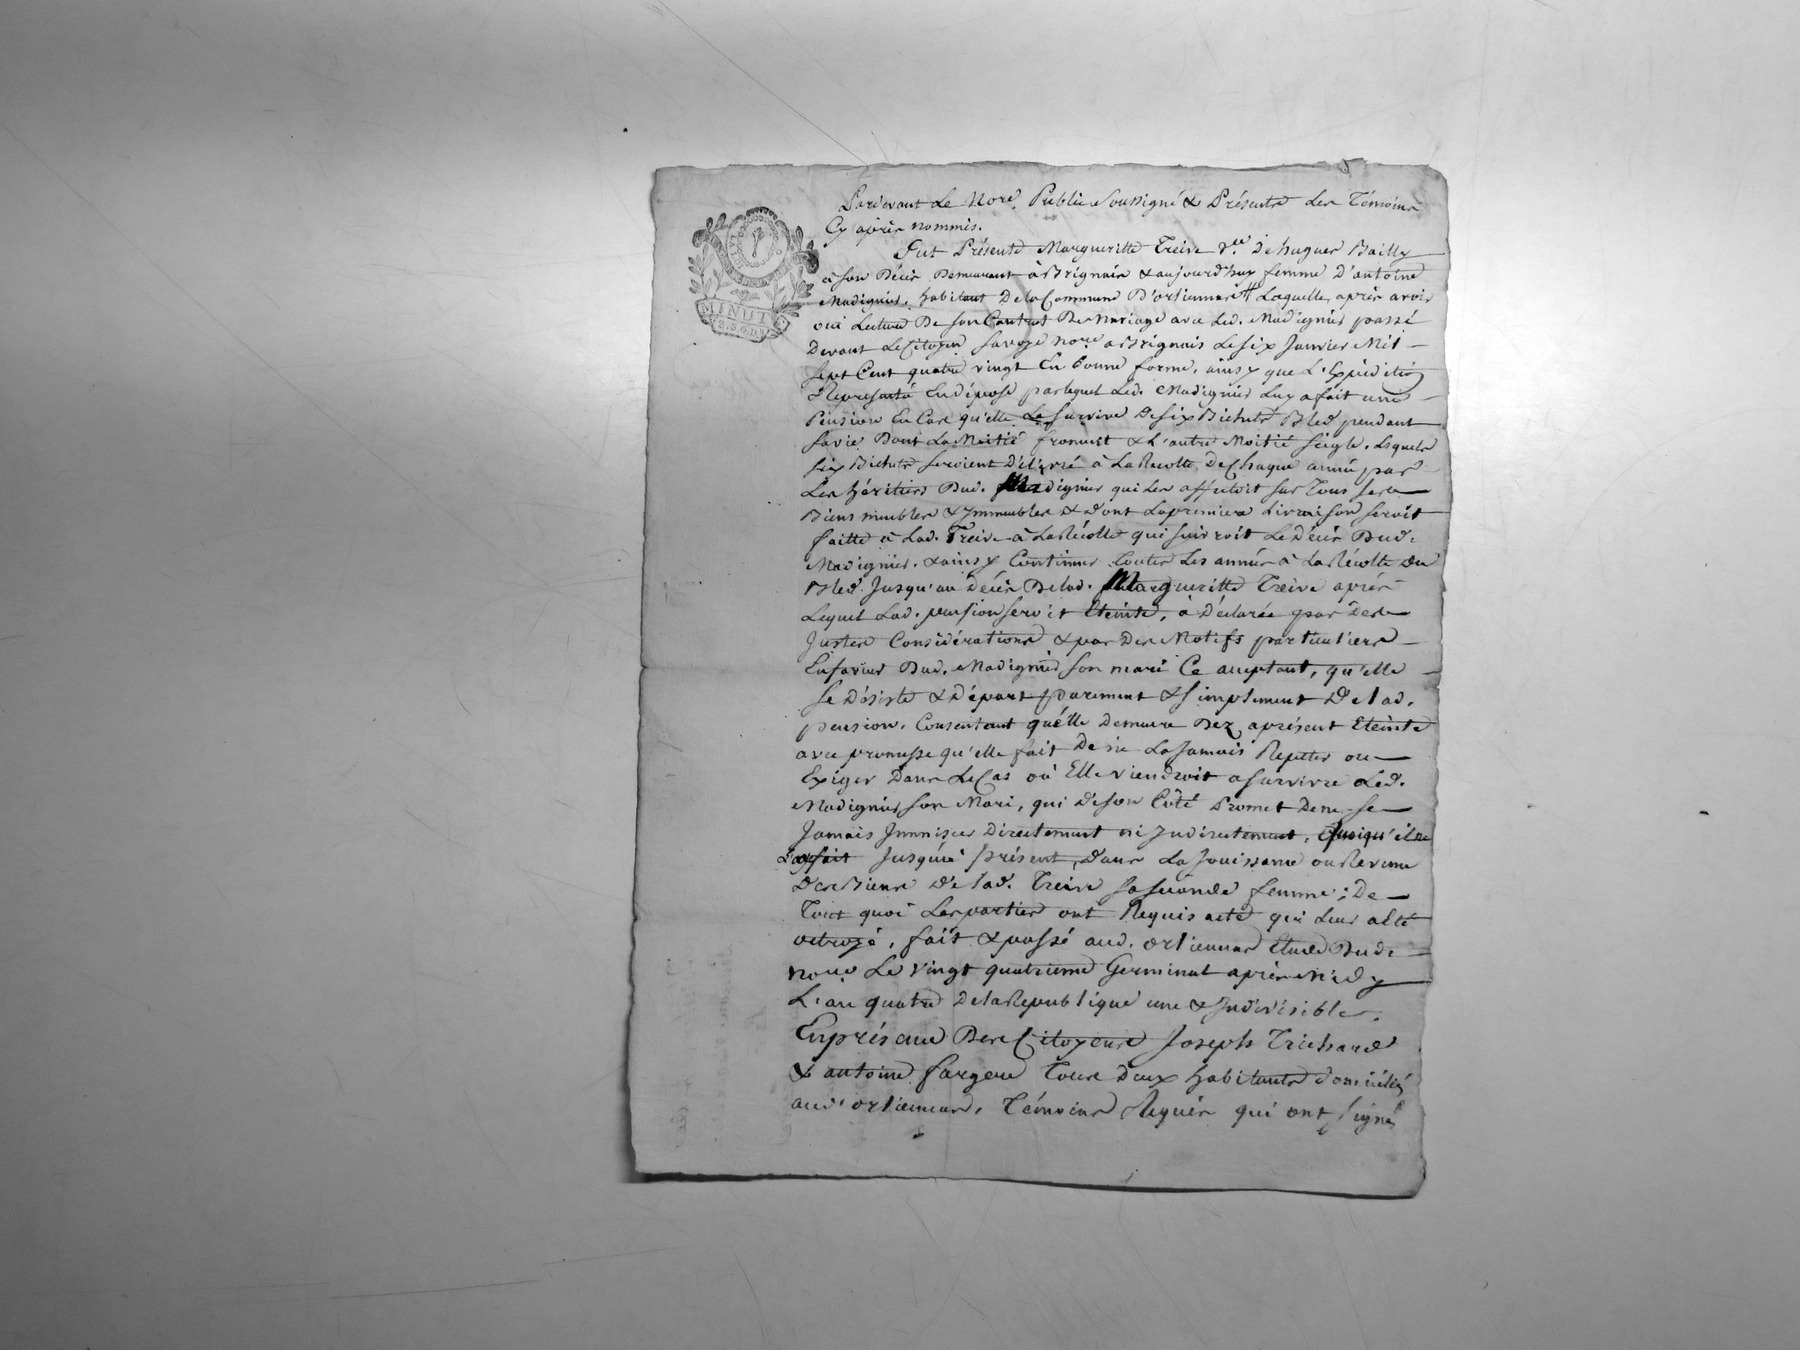 MINUTE
2. S. 6. Drs
Pardevant Le Nore. Public Soussigné & Présents Les Témoins
Cy après nommés.
Fut Présente Margueritte Treive Vee. De hugues Bailly
à son Décès Demeurant à Brignais & aujourd'huy femme D'antoine
Madignier, habitant De la Commune D'orliennas Laquelle, après avoir
oui Lecture De son Contrat De Mariage avec Led. Madignier passé
Devant Le Citoyen Savoye nore a Brignais Le six Janvier Mil
sept Cent quatre vingt En bonne forme, ainsy que L'Expédition
Represanté En dépose par lequel Led. Madignier Luy a fait une
Pension En Cas qu'elle Le survive De six Bichets Bled pendant
sa vie Dont La Moitié froment & L'autre Moitié seigle, Lesquels
six Bichets seroient Délivré à La Recolte De Chaque année par
Les héritiers Dud. Madignier qui Les affectoit sur Tous ses
Biens meubles & Immeubles & dont La premiere Livraison seroit
faitte à Lad. Treive à La Récolte qui suivroit Le Décès Dud.
Madignier. & ainsy Continuer Toutes Les années à La Récolte du
Bled Jusqu'au décès De lad. Margueritte Treive après
Lequel Lad. pension seroit Eteinte, à Déclarée par Des
Justes Considérations & par Des Motifs particuliers
En faveur Dud. Madignier son mari Ce acceptant, qu'elle
se Désiste & Départ purement & simplement De lad.
pension. Consentant qu'elle Demeure Dez aprésent Eteinte
avec promesse qu'elle fait De ne La Jamais Repetter ou
Exiger Dans Le Cas où Elle viendroit a survivre Led.
Madignier son Mari, qui De son Côté Promet De ne se
Jamais Immiscer Directement ni Indirectement, Quoiqu'il ne
L'aye fait Jusqu'à présent, Dans La Jouissance ou Revenu
Des Biens De lad. Treive sa seconde femme; De
Tout quoi Les parties ont Requis acte qui Leur a Eté
octroyé, fait & passé aud. orliennas Etude Dud.
nore Le vingt quatrieme Germinal après Midy
L'an quatre De la Republique une & Indivisible.
En présance Des Citoyens Joseph Trichard
& antoine fargere Tous deux habitants domiciliés
aud. orliennas, Témoins Requis qui ont signés